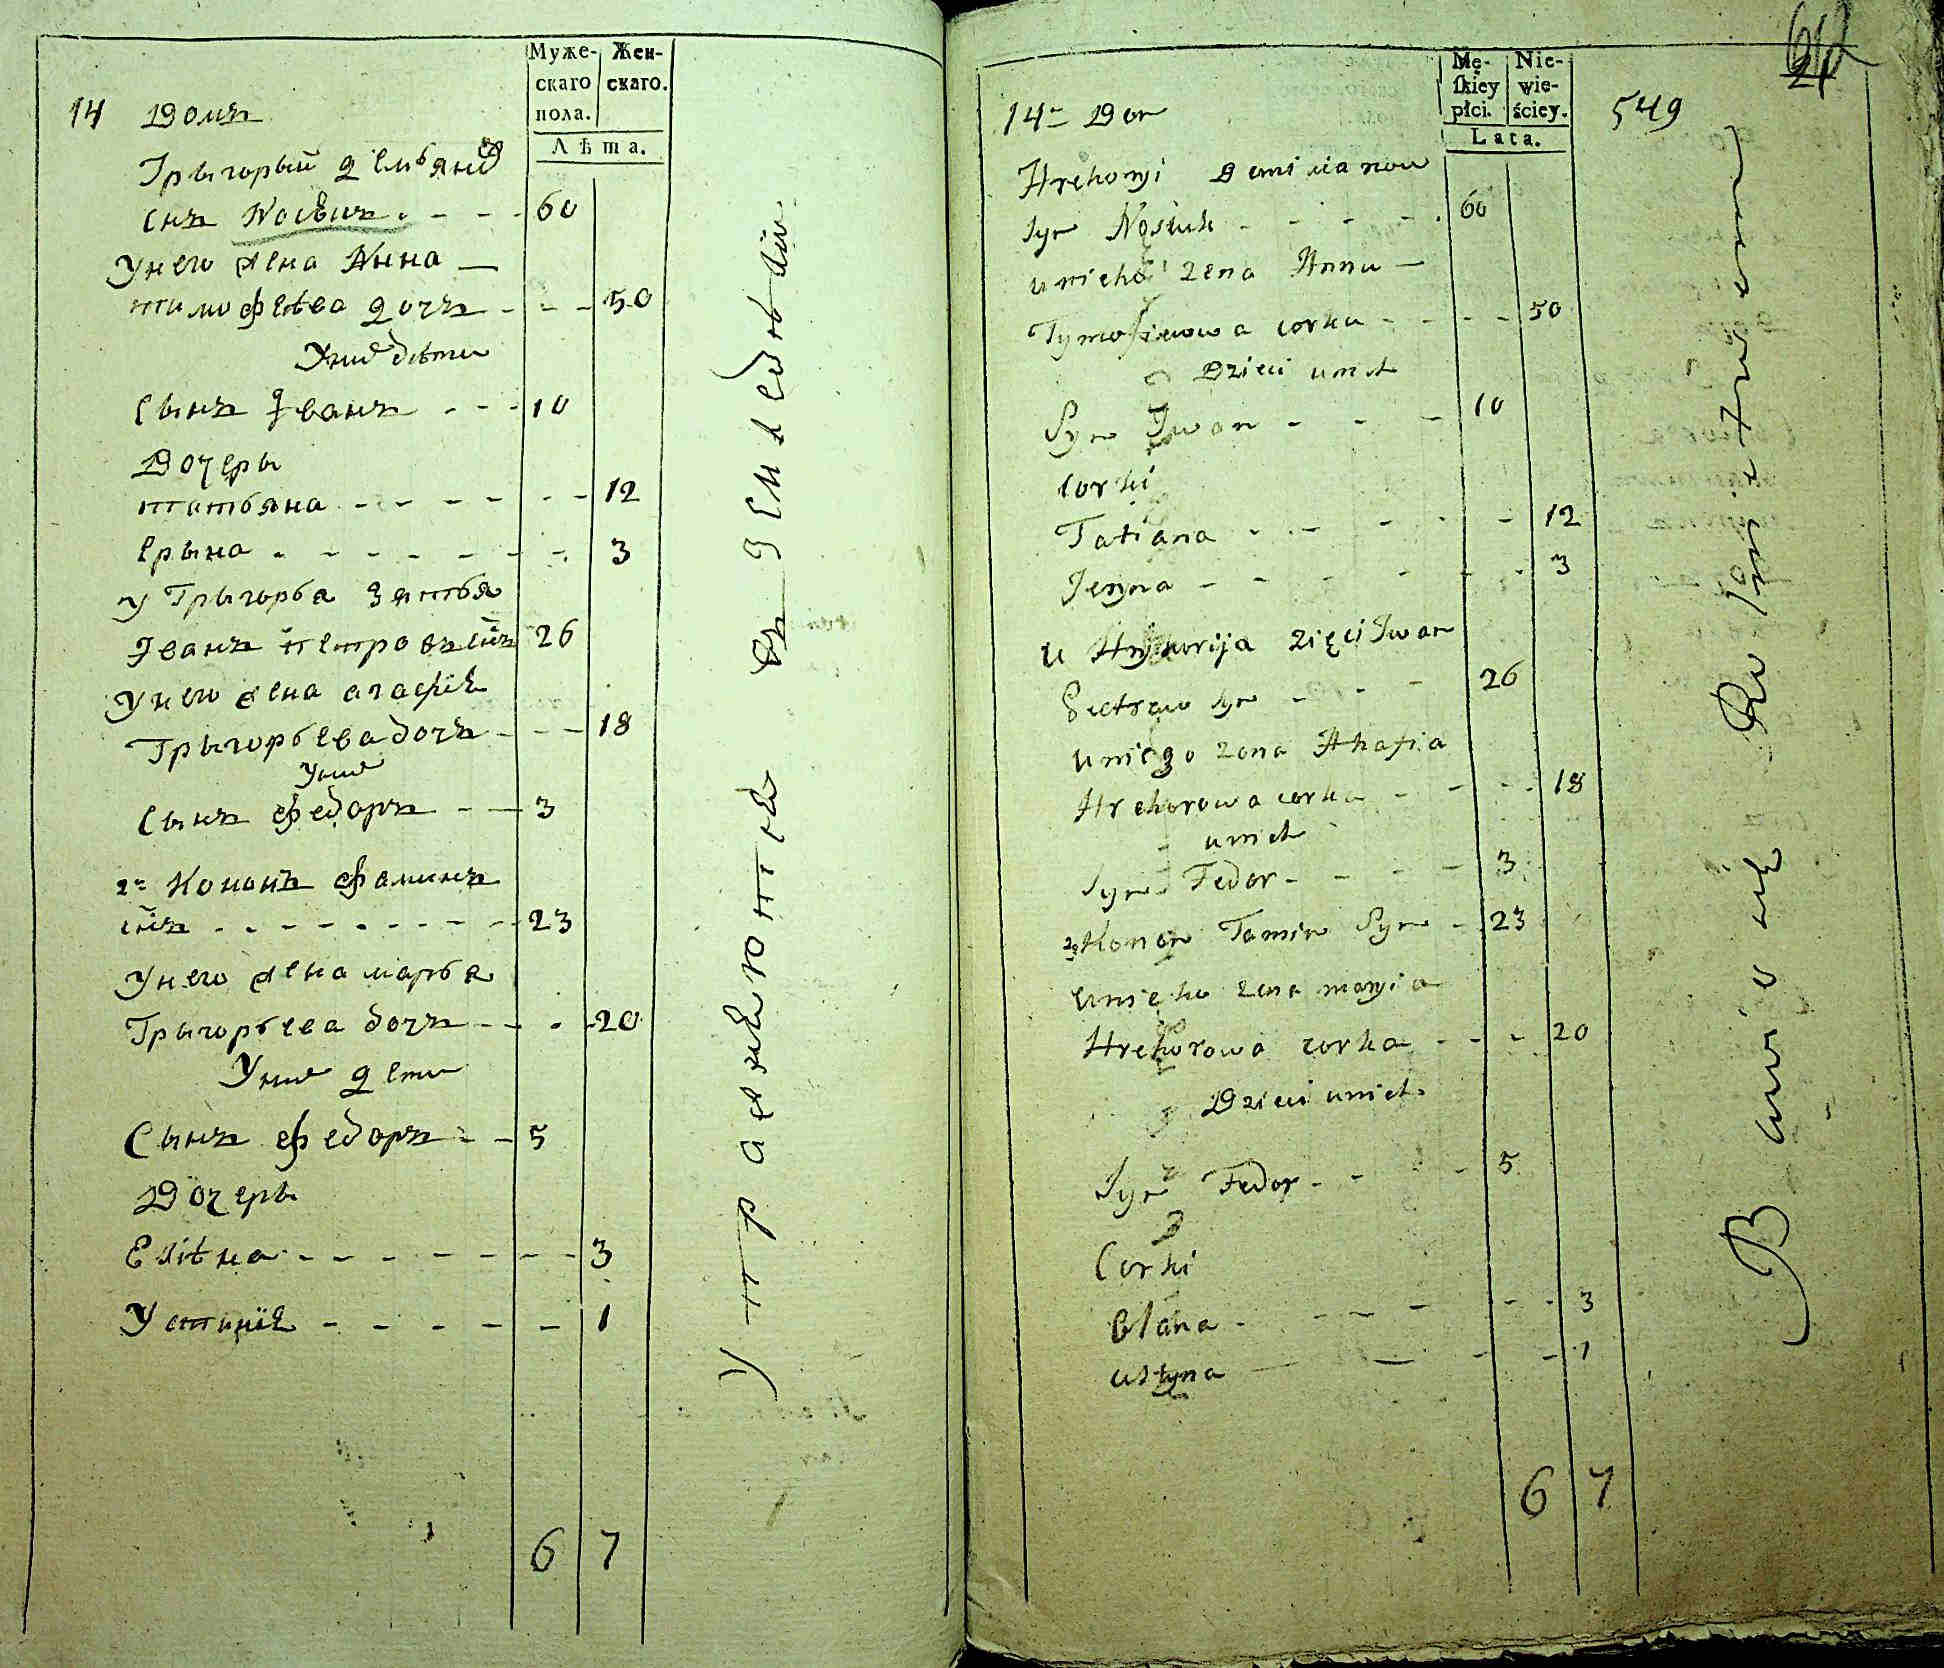 Муже-
скаго
пола.
Жен-
скаго.
Лѣта.
14 Домъ
Грыгорый демьянов
снъ Носѣкъ 60
Унего жена Анна
тимофѣева дочъ 50
Уних дѣти
Сынъ Іванъ 10
Дочеры
татьяна 12
Ерына 3
У Грыгорья зятья
Іванъ петровъ снъ 26
Унего жена агафиѣ
Грыгорьева дочъ 18
Уних
Сынъ федоръ 3
2ъ Кононъ фаминъ
снъ 23
Унего жена марья
Грыгорьева дочъ 20
Уних дети
Сынъ федоръ 5
Дочеры
Елѣна 3
Устиніѣ 1
6 7
упражнѣютсѣ въ земледѣліи
Mę-
ſkiey
płci.
Nie-
wie-
ściey.
Lata.
549
14 Dom
Hrehoryi Demianow
Syn Nosiuk 60
unieho żena Anna
Tymofiiowa corka 50
Dzieci unich
Syn Iwan 10
Corki
Tatiana 12
Jeryna 3
U Hryhorija zięci Iwan
Pietrow syn 26
uniego żona Ahafia
Hrehorowa corka 18
unich
Syn Fedor 3
2 Konon Famin Syn 23
Unieho żena maryia
Hrehorowa corka 20
Dzieci unich
Syn Fedor 5
Corki
Olana 3
ustyna 1
6 7